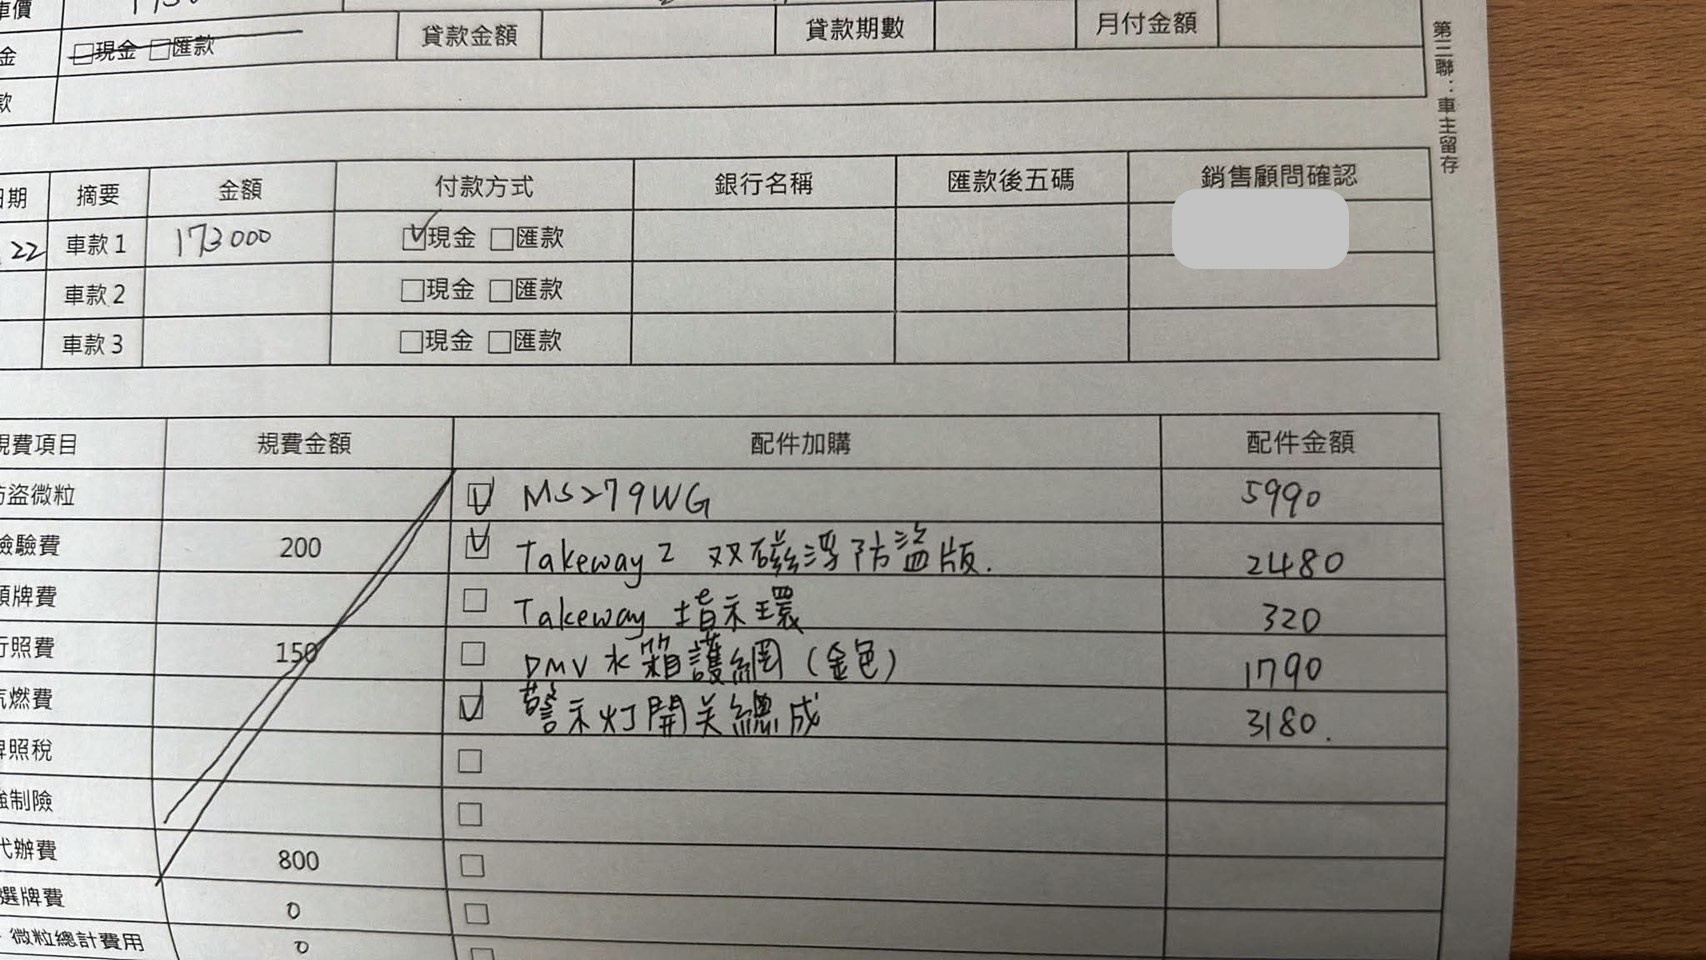 車價
金 □現金 □匯款 貸款金額 貸款期數 月付金額
款
第三聯：車主留存
日期 摘要 金額 付款方式 銀行名稱 匯款後五碼 銷售顧問確認
22 車款1 173000 ☑現金 □匯款
車款2 □現金 □匯款
車款3 □現金 □匯款
規費項目 規費金額 配件加購 配件金額
防盜微粒 ☑ MS279WG 5990
檢驗費 200 ☑ Takeway 2 双磁浮防盜版. 2480
領牌費 □ Takeway 指示環 320
行照費 150 □ DMV水箱護網(金色) 1790
汽燃費 ☑ 警示灯開关總成 3180.
牌照稅 □
強制險 □
代辦費 800 □
選牌費 0 □
微粒總計費用 0